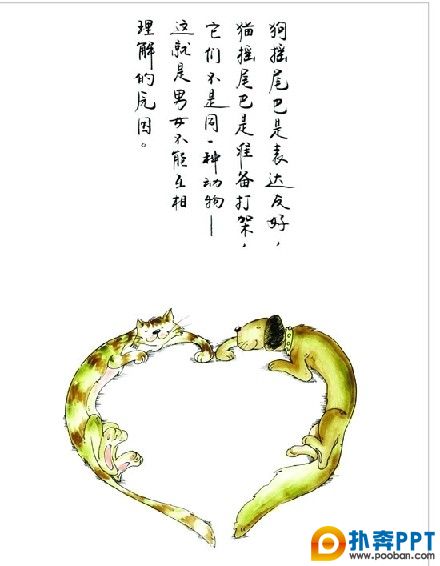 狗摇尾巴是表达友好，
猫摇尾巴是准备打架，
它们不是同一种动物——
这就是男女不能互相
理解的原因。
扑奔PPT
www.pooban.com